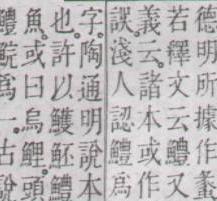 德明所據作䖝
若釋文云鱧又
義云諸本或作
誤淺人認鱧爲
字陶通明說本
也許以鱯魾鱧
魚或曰烏鯉頭
鱧鯇爲一古說